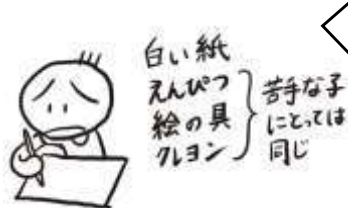 白い紙
えんぴつ
絵の具
クレヨン
苦手な子
にとっては
同じ